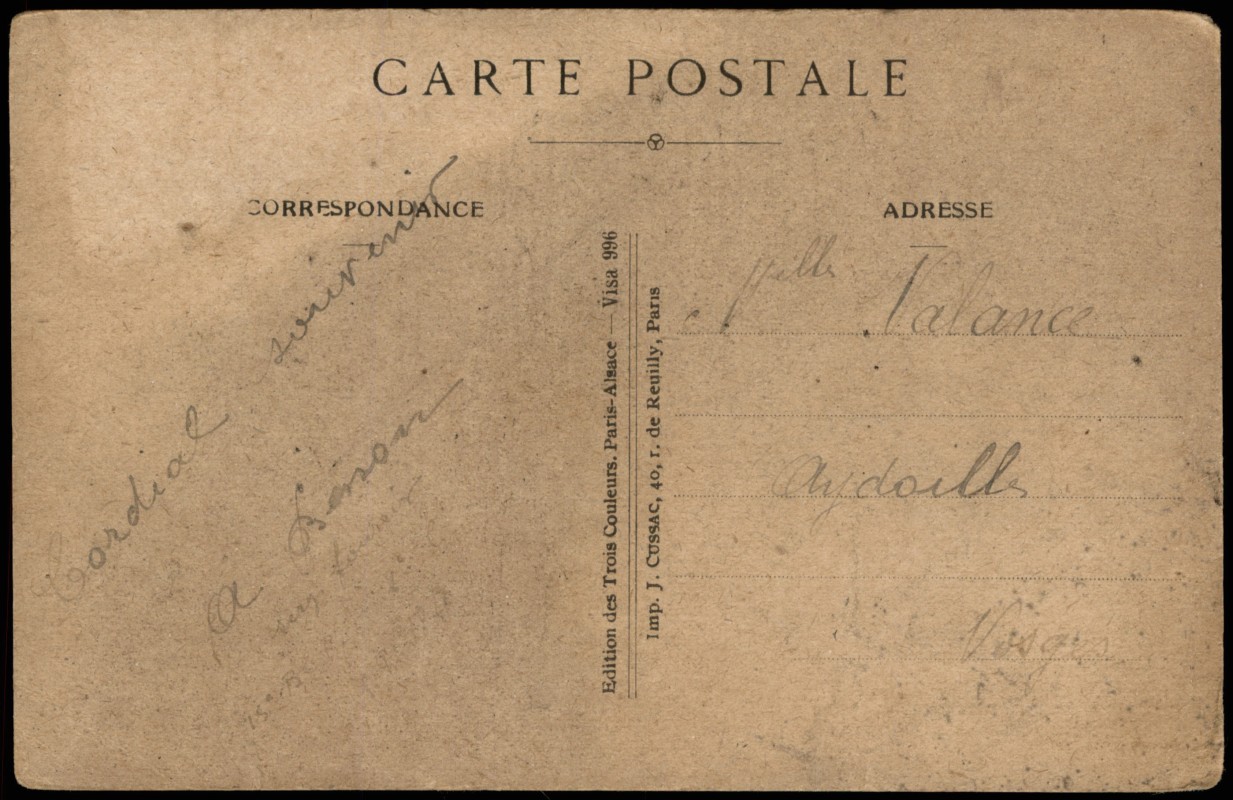 CARTE POSTALE
CORRESPONDANCE
Cordial souvenir
A
Edition des Trois Couleurs. Paris-Alsace — Visa 996
Imp. J. CUSSAC, 40, r. de Reuilly, Paris
ADRESSE
Mlle Valance
Aydoilles
Vosges